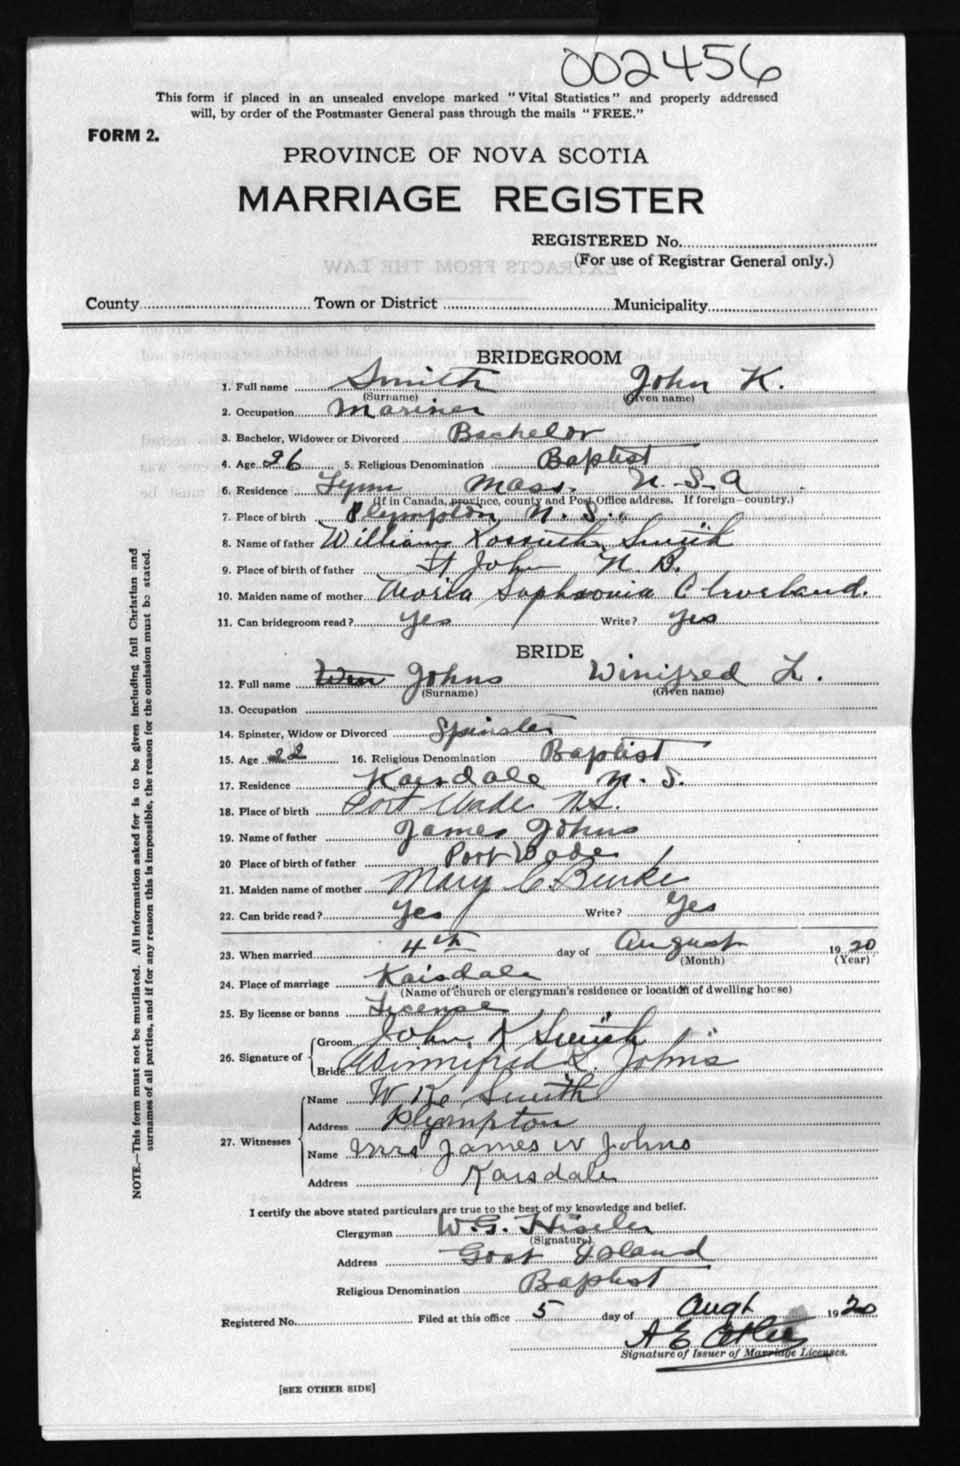 002456
This form if placed in an unsealed envelope marked "Vital Statistics" and properly addressed
will, by order of the Postmaster General pass through the mails "FREE."
FORM 2.
PROVINCE OF NOVA SCOTIA
MARRIAGE REGISTER
REGISTERED No.
(For use of Registrar General only.)
County Town or District Municipality
BRIDEGROOM
1. Full name Smith John K.
(Surname) (Given name)
2. Occupation Mariner
3. Bachelor, Widower or Divorced Bachelor
4. Age 26 5. Religious Denomination Baptist
6. Residence Lynn Mass. U.S.A
(If in Canada, province, county and Post Office address. If foreign—country.)
7. Place of birth Plympton, N.S.
8. Name of father William Kossuth Smith
9. Place of birth of father St John N.B.
10. Maiden name of mother Sophronia Cleveland.
11. Can bridegroom read? Yes Write? Yes
BRIDE
12. Full name Win Johns Winifred L.
(Surname) (Given name)
13. Occupation
14. Spinster, Widow or Divorced Spinster
15. Age 22 16. Religious Denomination Baptist
17. Residence Karsdale N.S.
18. Place of birth Port Wade N.S.
19. Name of father James Johns
20 Place of birth of father Port Wade
21. Maiden name of mother Mary C Burke
22. Can bride read? Yes Write? Yes
23. When married 4th day of August 1920
(Month) (Year)
24. Place of marriage Karsdale
(Name of church or clergyman's residence or location of dwelling house)
25. By license or banns License
26. Signature of Groom John K Smith
Bride Winnifred L. Johns
27. Witnesses Name W. K. Smith
Address Plympton
Name Mrs James W Johns
Address Karsdale
I certify the above stated particulars are true to the best of my knowledge and belief.
Clergyman W.G.
(Signature)
Address Goat Island
Religious Denomination Baptist
Registered No. Filed at this office 5 day of Augt 1920
A E
Signature of Issuer of Marriage Licenses.
[SEE OTHER SIDE]
NOTE.—This form must not be mutilated. All information asked for is to be given including full Christian and
surnames of all parties, and if for any reason this is impossible, the reason for the omission must be stated.